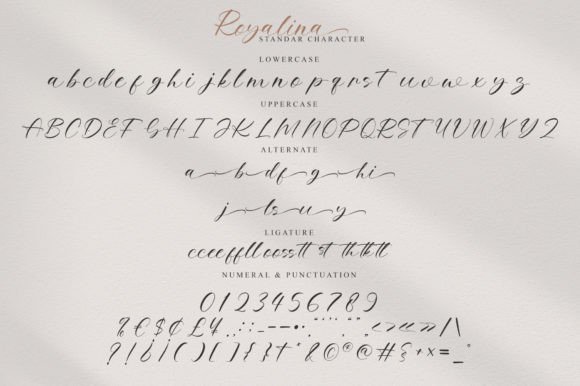 Royalina
STANDAR CHARACTER
LOWERCASE
a b c d e f g h i j k l m n o p q r s t u v w x y z
UPPERCASE
A B C D E F G H I J K L M N O P Q R S T U V W X Y Z
ALTERNATE
a b d f g h i
j l s u y
LIGATURE
cc ee ff ll oo ss tt st th tk tl
NUMERAL & PUNCTUATION
0 1 2 3 4 5 6 7 8 9
% € $ ¢ £ ¥ , . : ; … – — - • · " ' ' " " ‚ „ < > « » / | \
? ! ¿ ¡ ( ) [ ] { } * & © ® @ # § + × = _ °